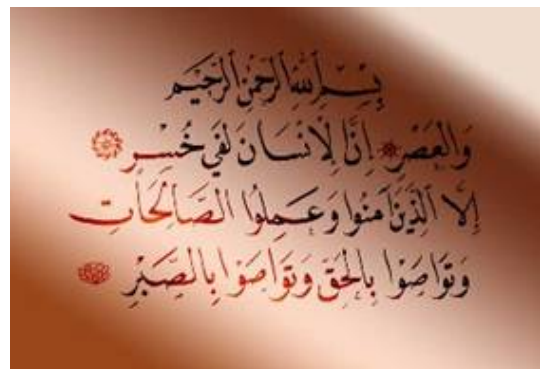 بِسْمِ اللَّهِ الرَّحْمَٰنِ الرَّحِيمِ
وَالْعَصْرِ إِنَّ الْإِنْسَانَ لَفِي خُسْرٍ
إِلَّا الَّذِينَ آمَنُوا وَعَمِلُوا الصَّالِحَاتِ
وَتَوَاصَوْا بِالْحَقِّ وَتَوَاصَوْا بِالصَّبْرِ